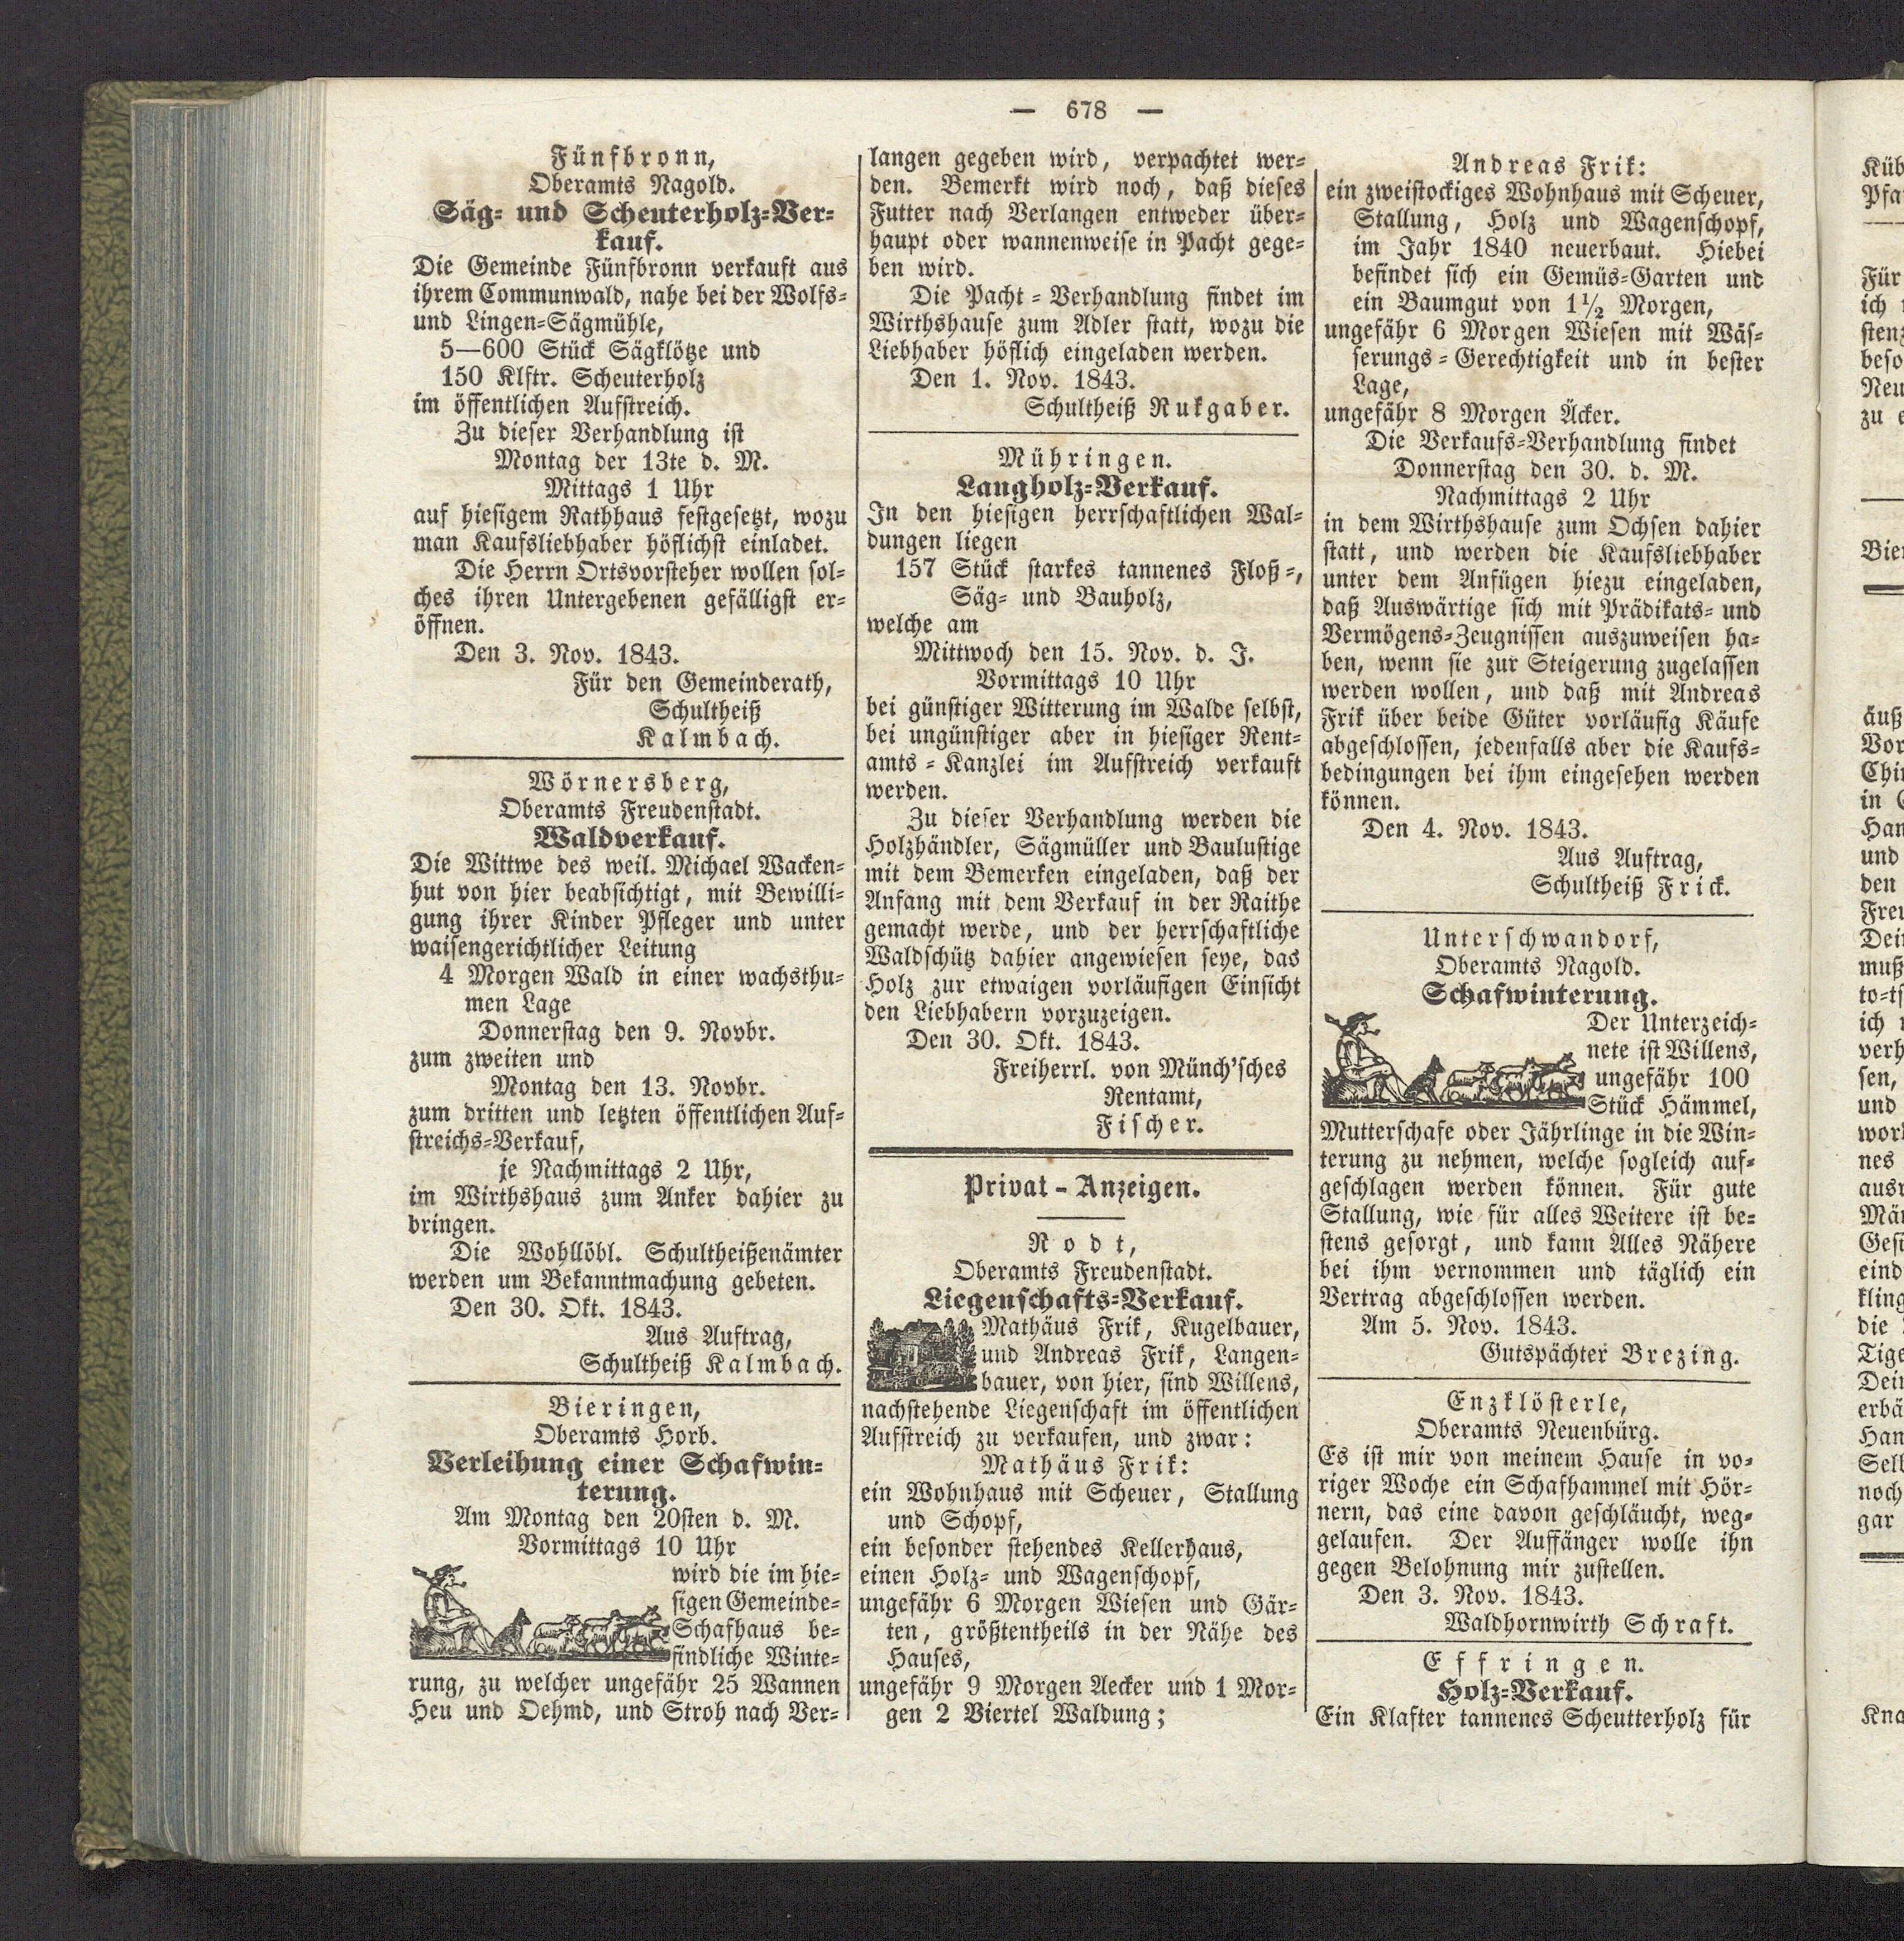 — 678 —
Fünfbronn,
Oberamts Nagold.
Säg- und Scheuterholz-Ver-
kauf.
Die Gemeinde Fünfbronn verkauft aus
ihrem Communwald, nahe bei der Wolfs-
und Lingen-Sägmühle,
5—600 Stück Sägklötze und
150 Klftr. Scheuterholz
im öffentlichen Aufstreich.
Zu dieser Verhandlung ist
Montag der 13te d. M.
Mittags 1 Uhr
auf hiesigem Rathhaus festgesetzt, wozu
man Kaufsliebhaber höflichst einladet.
Die Herrn Ortsvorsteher wollen sol-
ches ihren Untergebenen gefälligst er-
öffnen.
Den 3. Nov. 1843.
Für den Gemeinderath,
Schultheiß
Kalmbach.
Wörnersberg,
Oberamts Freudenstadt.
Waldverkauf.
Die Wittwe des weil. Michael Wacken-
hut von hier beabsichtigt, mit Bewilli-
gung ihrer Kinder Pfleger und unter
waisengerichtlicher Leitung
4 Morgen Wald in einer wachsthu-
men Lage
Donnerstag den 9. Novbr.
zum zweiten und
Montag den 13. Novbr.
zum dritten und letzten öffentlichen Auf-
streichs-Verkauf,
je Nachmittags 2 Uhr,
im Wirthshaus zum Anker dahier zu
bringen.
Die Wohllöbl. Schultheißenämter
werden um Bekanntmachung gebeten.
Den 30. Okt. 1843.
Aus Auftrag,
Schultheiß Kalmbach.
Bieringen,
Oberamts Horb.
Verleihung einer Schafwin-
terung.
Am Montag den 20sten d. M.
Vormittags 10 Uhr
wird die im hie-
sigen Gemeinde-
Schafhaus be-
findliche Winte-
rung, zu welcher ungefähr 25 Wannen
Heu und Oehmd, und Stroh nach Ver-
langen gegeben wird, verpachtet wer-
den. Bemerkt wird noch, daß dieses
Futter nach Verlangen entweder über-
haupt oder wannenweise in Pacht gege-
ben wird.
Die Pacht-Verhandlung findet im
Wirthshause zum Adler statt, wozu die
Liebhaber höflich eingeladen werden.
Den 1. Nov. 1843.
Schultheiß Rukgaber.
Mühringen.
Langholz-Verkauf.
In den hiesigen herrschaftlichen Wal-
dungen liegen
157 Stück starkes tannenes Floß-,
Säg- und Bauholz,
welche am
Mittwoch den 15. Nov. d. J.
Vormittags 10 Uhr
bei günstiger Witterung im Walde selbst,
bei ungünstiger aber in hiesiger Rent-
amts-Kanzlei im Aufstreich verkauft
werden.
Zu dieser Verhandlung werden die
Holzhändler, Sägmüller und Baulustige
mit dem Bemerken eingeladen, daß der
Anfang mit dem Verkauf in der Raithe
gemacht werde, und der herrschaftliche
Waldschütz dahier angewiesen seye, das
Holz zur etwaigen vorläufigen Einsicht
den Liebhabern vorzuzeigen.
Den 30. Okt. 1843.
Freiherrl. von Münch'sches
Rentamt,
Fischer.
Privat-Anzeigen.
Rodt,
Oberamts Freudenstadt.
Liegenschafts-Verkauf.
Mathäus Frik, Kugelbauer,
und Andreas Frik, Langen-
bauer, von hier, sind Willens,
nachstehende Liegenschaft im öffentlichen
Aufstreich zu verkaufen, und zwar:
Mathäus Frik:
ein Wohnhaus mit Scheuer, Stallung
und Schopf,
ein besonder stehendes Kellerhaus,
einen Holz- und Wagenschopf,
ungefähr 6 Morgen Wiesen und Gär-
ten, größtentheils in der Nähe des
Hauses,
ungefähr 9 Morgen Aecker und 1 Mor-
gen 2 Viertel Waldung;
Andreas Frik:
ein zweistockiges Wohnhaus mit Scheuer,
Stallung, Holz und Wagenschopf,
im Jahr 1840 neuerbaut. Hiebei
befindet sich ein Gemüs-Garten und
ein Baumgut von 1½ Morgen,
ungefähr 6 Morgen Wiesen mit Wäs-
serungs-Gerechtigkeit und in bester
Lage,
ungefähr 8 Morgen Äcker.
Die Verkaufs-Verhandlung findet
Donnerstag den 30. d. M.
Nachmittags 2 Uhr
in dem Wirthshause zum Ochsen dahier
statt, und werden die Kaufsliebhaber
unter dem Anfügen hiezu eingeladen,
daß Auswärtige sich mit Prädikats- und
Vermögens-Zeugnissen auszuweisen ha-
ben, wenn sie zur Steigerung zugelassen
werden wollen, und daß mit Andreas
Frik über beide Güter vorläufig Käufe
abgeschlossen, jedenfalls aber die Kaufs-
bedingungen bei ihm eingesehen werden
können.
Den 4. Nov. 1843.
Aus Auftrag,
Schultheiß Frick.
Unterschwandorf,
Oberamts Nagold.
Schafwinterung.
Der Unterzeich-
nete ist Willens,
ungefähr 100
Stück Hämmel,
Mutterschafe oder Jährlinge in die Win-
terung zu nehmen, welche sogleich auf-
geschlagen werden können. Für gute
Stallung, wie für alles Weitere ist be-
stens gesorgt, und kann Alles Nähere
bei ihm vernommen und täglich ein
Vertrag abgeschlossen werden.
Am 5. Nov. 1843.
Gutspächter Brezing.
Enzklösterle,
Oberamts Neuenbürg.
Es ist mir von meinem Hause in vo-
riger Woche ein Schafhammel mit Hör-
nern, das eine davon geschläucht, weg-
gelaufen. Der Auffänger wolle ihn
gegen Belohnung mir zustellen.
Den 3. Nov. 1843.
Waldhornwirth Schraft.
Effringen.
Holz-Verkauf.
Ein Klafter tannenes Scheutterholz für